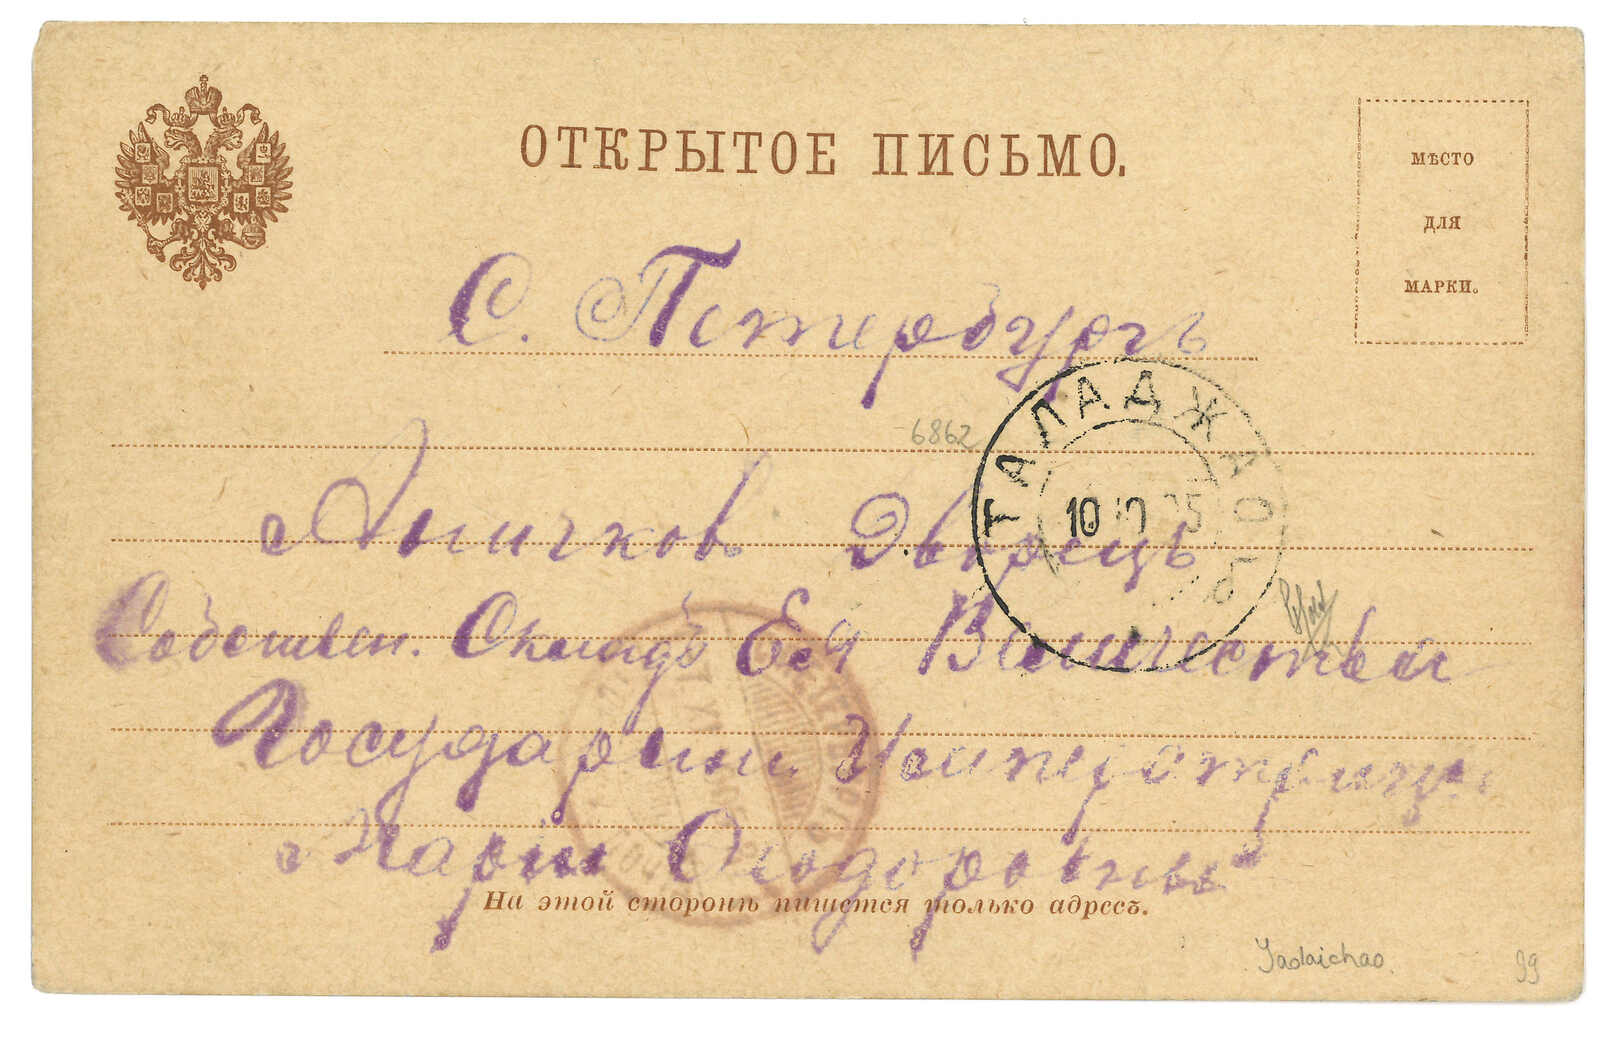 ОТКРЫТОЕ ПИСЬМО.
МѢСТО
ДЛЯ
МАРКИ.
С. Петербургъ
6862
ТАЛАДЖАО
10 10 05
Аничков Дворецъ
Собствен. Складъ Ея Величества
Государыни Императрицы
Маріи Феодоровны
На этой сторонѣ пишется только адресъ.
Yaolaichao
99